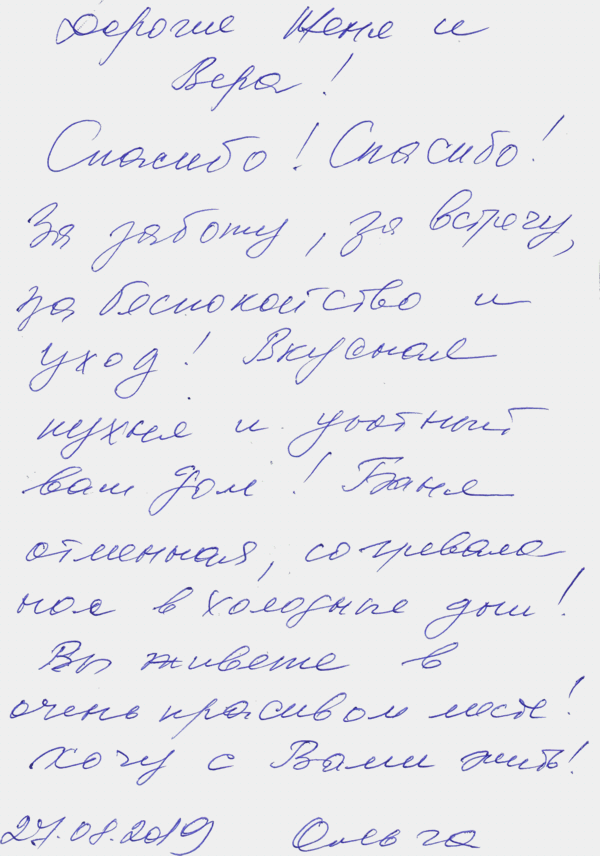 Дорогие Женя и
Вера!
Спасибо! Спасибо!
За заботу, за встречу,
за беспокойство и
уход! Вкусная
кухня и уютный
ваш дом! Баня
отменная, согревала
нас в холодные дни!
Вы живете в
очень красивом месте!
Хочу с Вами жить!
27.08.2019 Ольга